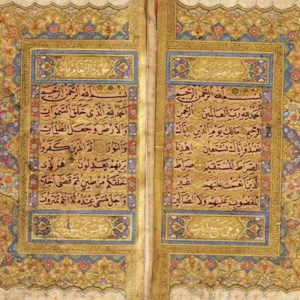 بسم الله الرحمن الرحيم
الحمد لله رب العالمين
الرحمن الرحيم مالك يوم الدين اياك
نعبد واياك نستعين اهدنا
الصراط المستقيم صراط
الذين انعمت عليهم غير
المغضوب عليهم ولا الضالين
بسم الله الرحمن الرحيم
الحمد لله الذي خلق السموات
والارض وجعل الظلمات
والنور ثم الذين كفروا
بربهم يعدلون هو الذي
خلقكم من طين ثم قضى اجلا
واجل مسمى عنده ثم انتم تمترون